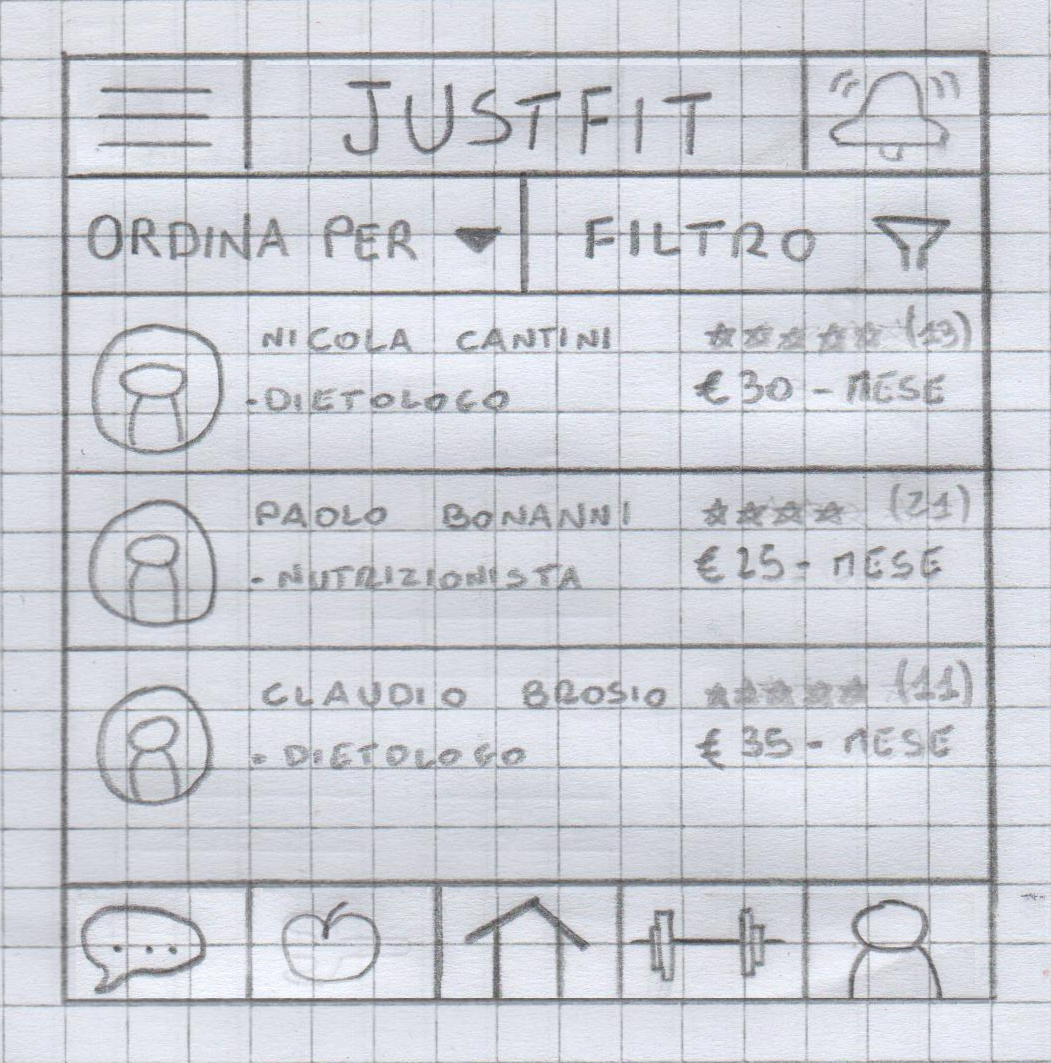 JUSTFIT
ORDINA PER FILTRO
NICOLA CANTINI ★★★★★ (13)
-DIETOLOGO €30 - MESE
PAOLO BONANNI ★★★★ (21)
- NUTRIZIONISTA €25 - MESE
CLAUDIO BROSIO ★★★★★ (11)
- DIETOLOGO €35 - MESE